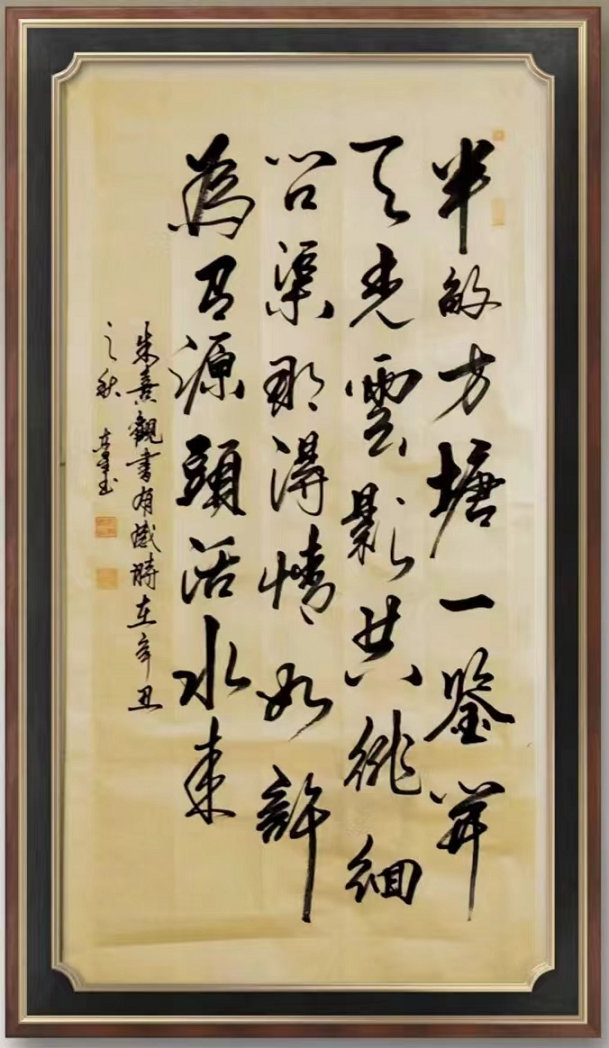 半畝方塘一鑒開
天光雲影共徘徊
問渠那得情如許
為有源頭活水來
朱熹觀書有感時在辛丑
之秋